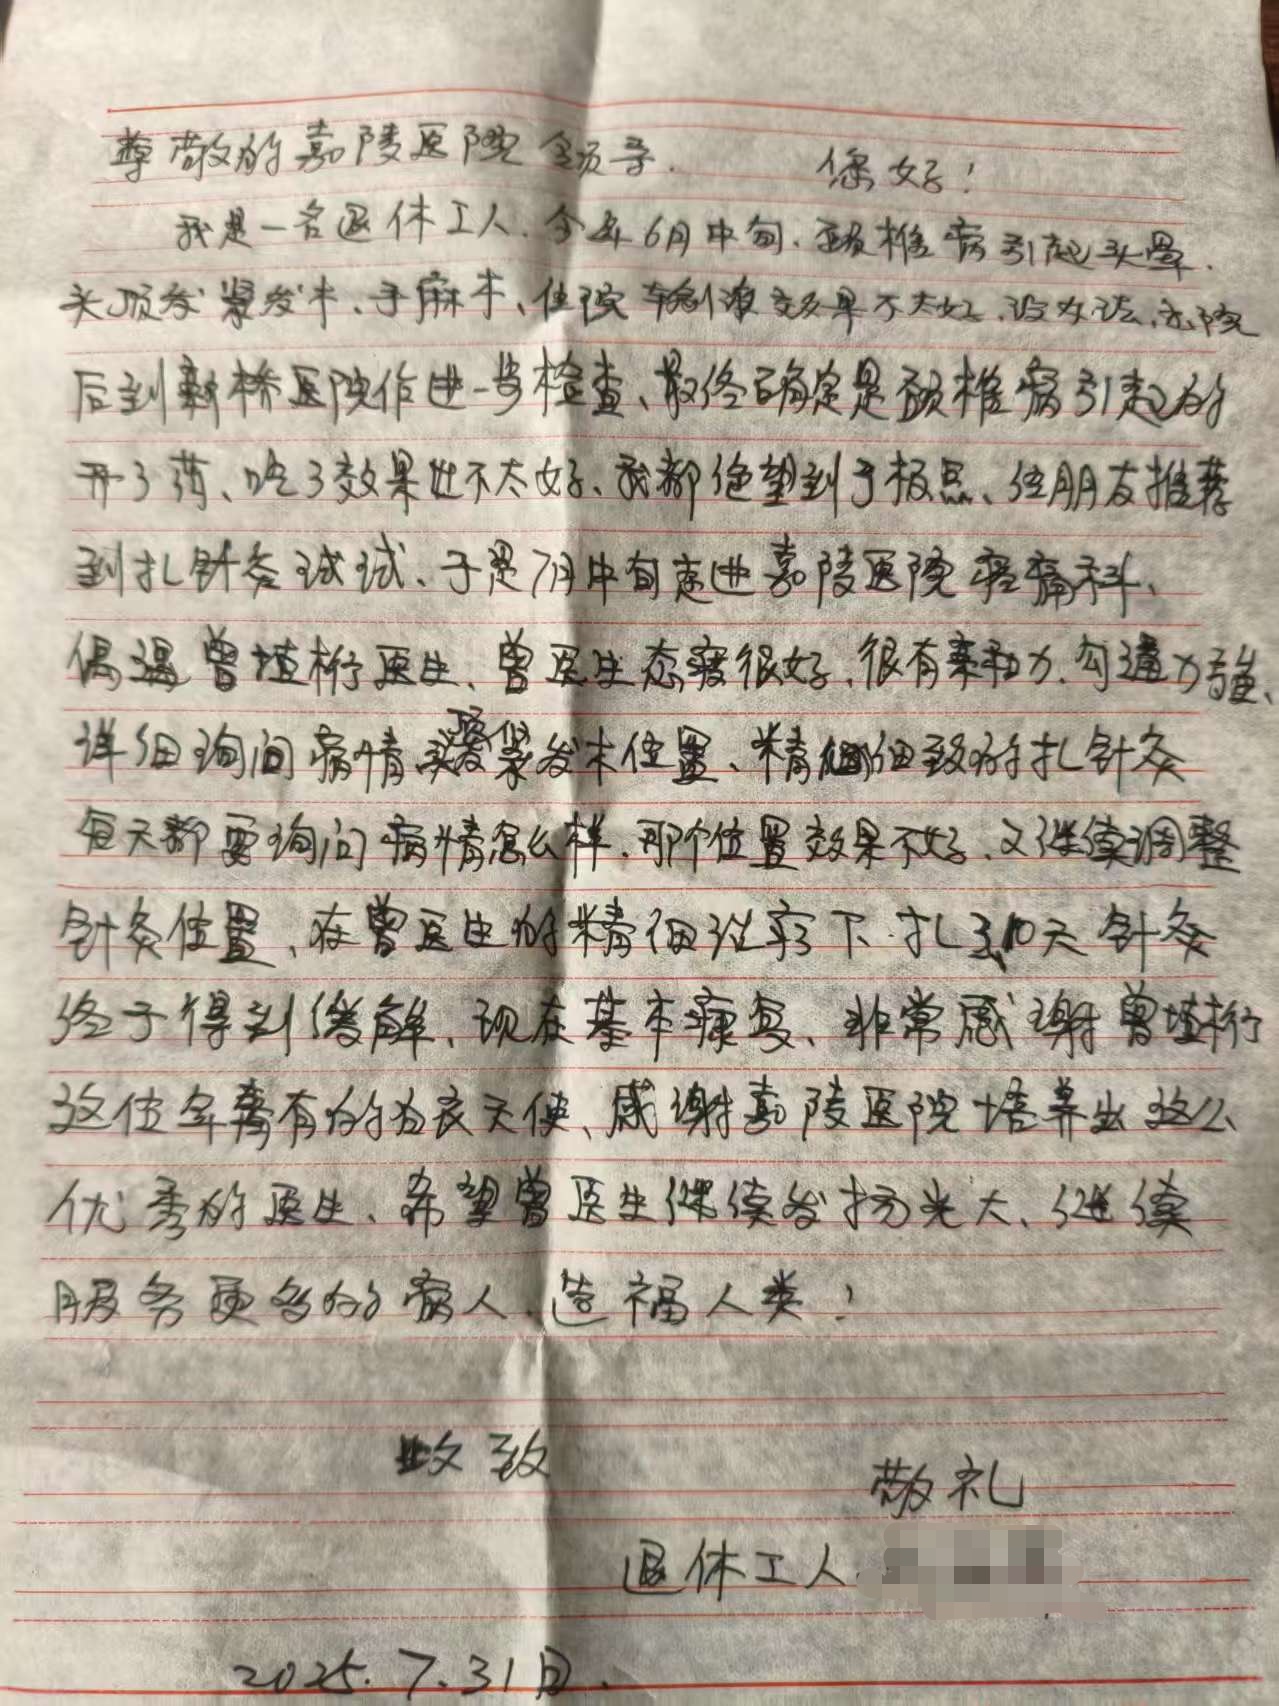 尊敬的嘉陵医院领导. 您好!
我是一名退休工人.今年6月中旬、颈椎病引起头晕.
头顶发紧发木、手麻木、住院输液效果不太好.没办法.出院
后到新桥医院作进一步检查、最终确定是颈椎病引起的
开了药、吃了效果也不太好、我都绝望到了极点、经朋友推荐
到扎针灸试试、于是7月中旬走进嘉陵医院疼痛科、
偶遇曾 桁医生、曾医生态度很好、很有亲和力.勾通力强、
详细询问病情 紧发木位置、精 细致的扎针灸
每天都要询问病情怎么样.那个位置效果不好、又继续调整
针灸位置、在曾医生的精细治疗下.扎了10天针灸
终于得到缓解、现在基本康复、非常感谢曾 桁
这位年青有的白衣天使、感谢嘉陵医院培养出这么
优秀的医生、希望曾医生继续发扬光大、继续
服务更多的病人、造福人类!
此致
敬礼
退休工人
2025.7.31日.